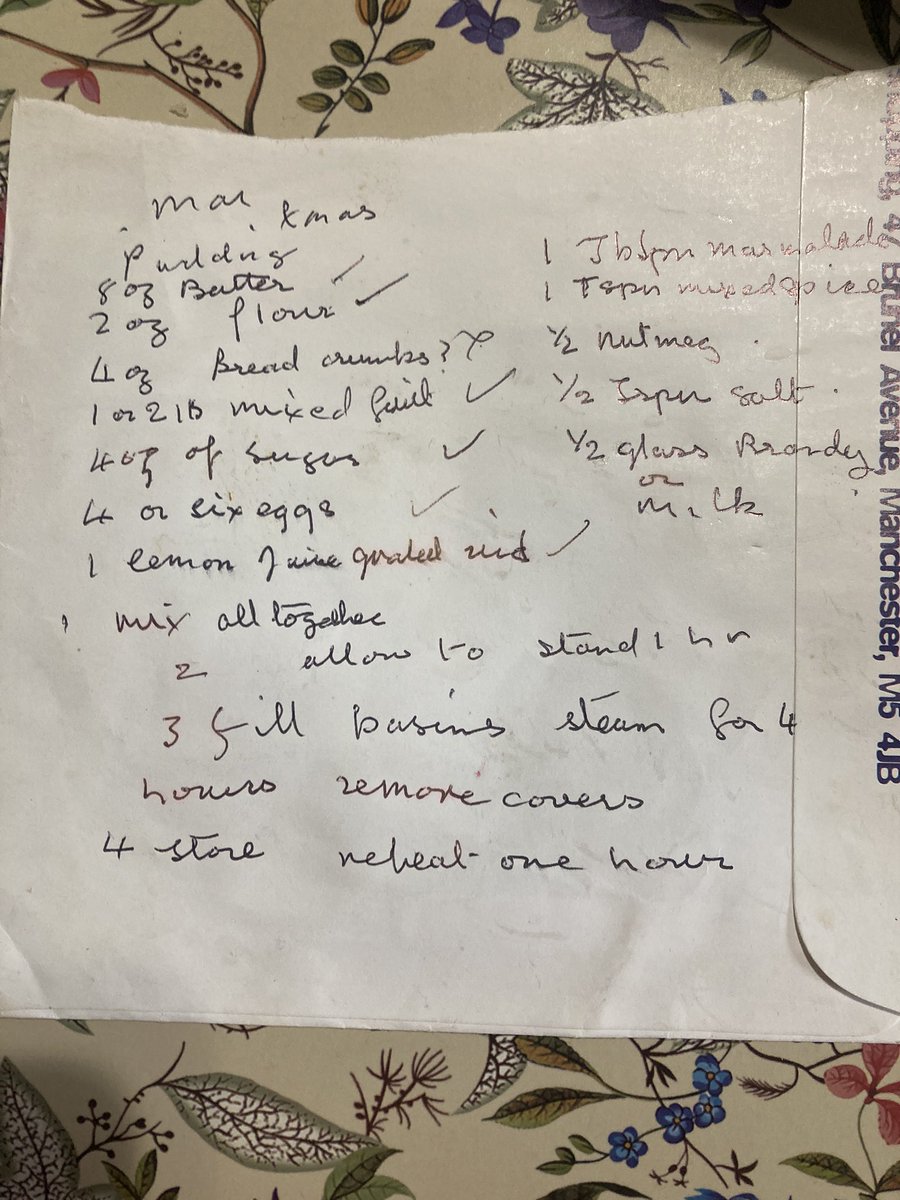 Mar Xmas
Pudding
8 oz Butter ✓
2 oz flour ✓
4 oz Bread crumbs ?
1 or 2 lb mixed fruit ✓
4 oz of Sugar ✓
4 or six eggs ✓
1 lemon juice grated rind ✓
1 Tbspn marmalade
1 Tspn mixed spice
1/2 nutmeg .
1/2 Tspn Salt .
1/2 glass Brandy
or
milk
1 mix alltogether
2 allow to stand 1 hr
3 fill basins steam for 4
hours remove covers
4 store reheat one hour
47 Brunel Avenue, Manchester, M5 4JB